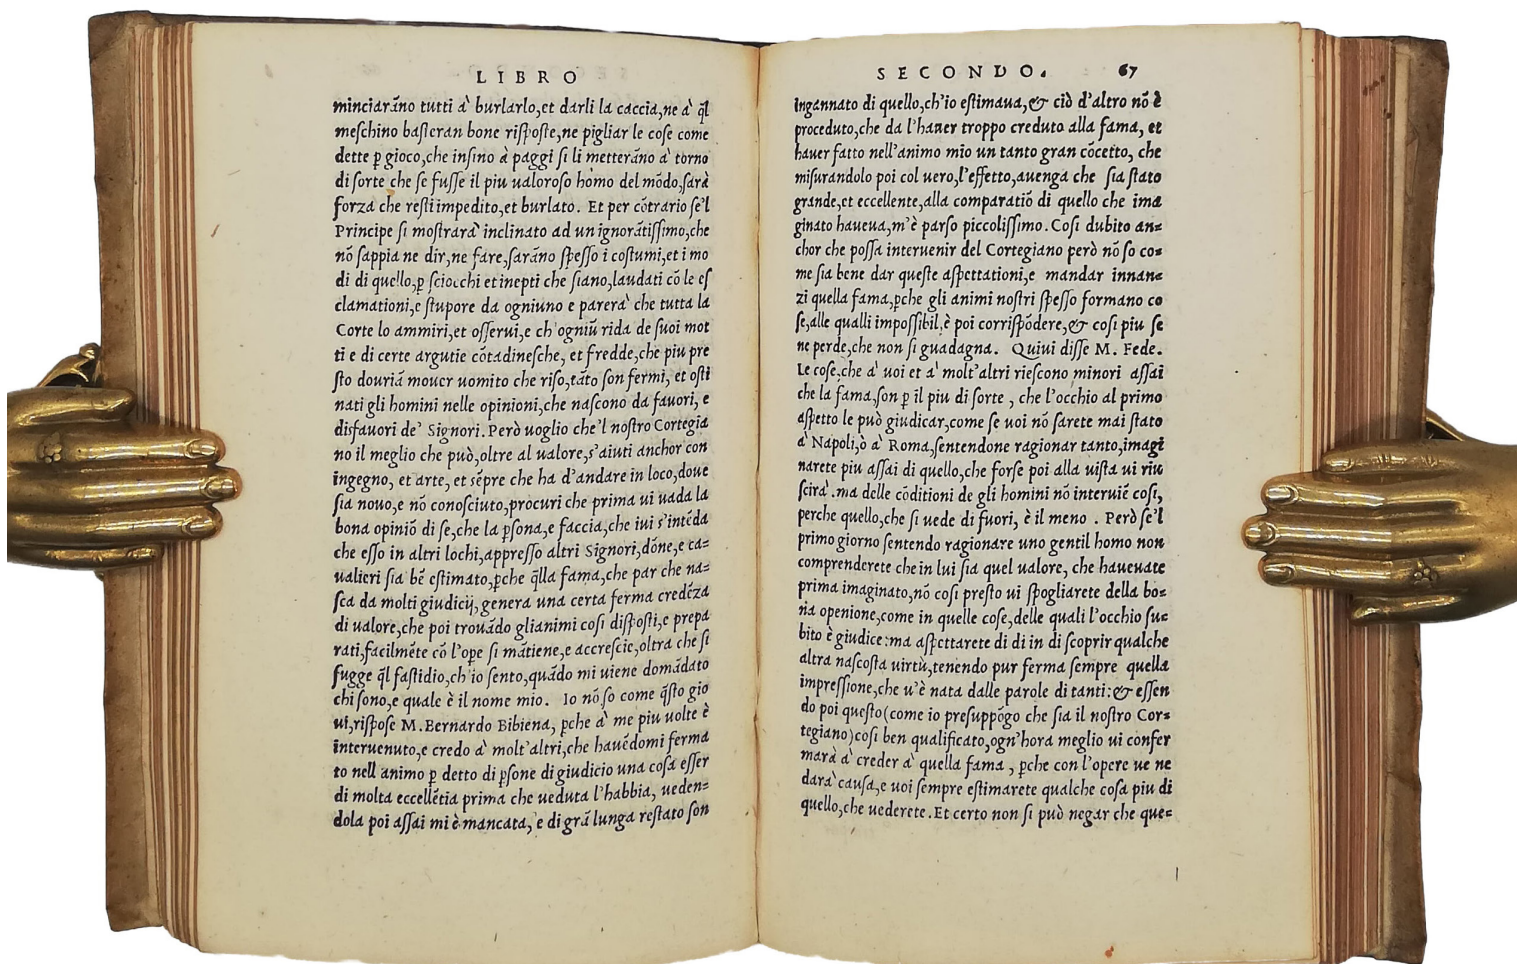 LIBRO
minciarāno tutti à burlarlo,et darli la caccia,ne à q̄l
meschino basteran bone risposte,ne pigliar le cose come
dette p̄ gioco,che insino à paggi si li metterāno à torno
di sorte che se fusse il piu ualoroso homo del mōdo,sarà
forza che resti impedito,et burlato. Et per cōtrario se'l
Principe si mostrarà inclinato ad un ignorātissimo,che
nō sappia ne dir,ne fare,sarāno spesso i costumi,et i mo
di di quello,p̄ sciocchi et inepti che siano,laudati cō le es
clamationi,e stupore da ogniuno e parerà che tutta la
Corte lo ammiri,et osserui,e ch'ogniū rida de suoi mot
ti e di certe argutie cōtadinesche, et fredde,che piu pre
sto douriā mouer uomito che riso,tāto son fermi, et osti
nati gli homini nelle opinioni,che nascono da fauori, e
disfauori de' Signori. Però uoglio che'l nostro Cortegia
no il meglio che può,oltre al ualore,s'aiuti anchor con
ingegno, et arte, et sēpre che ha d'andare in loco,doue
sia nouo,e nō conosciuto,procuri che prima ui uada la
bona opiniō di se,che la p̄sona,e faccia,che iui s'intēda
che esso in altri lochi,appresso altri Signori,dōne,e ca=
ualieri sia bē estimato,p̄che q̄lla fama,che par che na=
sca da molti giudicij,genera una certa ferma credēza
di ualore,che poi trouādo glianimi cosi disposti,e prepa
rati,facilmēte cō l'ope si mātiene,e accrescie,oltra che si
fugge q̄l fastidio,ch'io sento,quādo mi uiene domādato
chi sono,e quale è il nome mio. Io nō so come q̄sto gio
ui,rispose M.Bernardo Bibiena, p̄che à me piu uolte è
interuenuto,e credo à molt'altri,che hauēdomi ferma
to nell animo p̄ detto di p̄sone di giudicio una cosa esser
di molta eccellētia prima che ueduta l'habbia, ueden=
dola poi assai mi è mancata, e di grā lunga restato son
SECONDO. 67
ingannato di quello,ch'io estimaua,& ciò d'altro nō è
proceduto,che da l'hauer troppo creduto alla fama, et
hauer fatto nell'animo mio un tanto gran cōcetto, che
misurandolo poi col uero,l'effetto,auenga che sia stato
grande,et eccellente,alla comparatiō di quello che ima
ginato haueua,m'è parso piccolissimo. Cosi dubito an=
chor che possa interuenir del Cortegiano però nō so co=
me sia bene dar queste aspettationi,e mandar innan=
zi quella fama,p̄che gli animi nostri spesso formano co
se,alle qualli impossibil,è poi corrispōdere,& cosi piu se
ne perde,che non si guadagna. Quiui disse M. Fede.
Le cose,che à uoi et à molt'altri riescono minori assai
che la fama,son p̄ il piu di sorte , che l'occhio al primo
aspetto le può giudicar,come se uoi nō sarete mai stato
à Napoli,ò à Roma,sentendone ragionar tanto,imagi
narete piu assai di quello,che forse poi alla uista ui riu
scirà.ma delle cōditioni de gli homini nō interuiē cosi,
perche quello,che si uede di fuori, è il meno . Però se'l
primo giorno sentendo ragionare uno gentil homo non
comprenderete che in lui sia quel ualore, che haueuate
prima imaginato,nō cosi presto ui spogliarete della bo=
na openione,come in quelle cose,delle quali l'occhio su=
bito è giudice:ma aspettarete di di in di scoprir qualche
altra nascosta uirtù,tenendo pur ferma sempre quella
impressione,che u'è nata dalle parole di tanti:& essen
do poi questo(come io presuppōgo che sia il nostro Cor=
tegiano)cosi ben qualificato,ogn'hora meglio ui confer
marà à creder à quella fama , p̄che con l'opere ue ne
darà causa,e uoi sempre estimarete qualche cosa piu di
quello,che uederete.Et certo non si può negar che que=